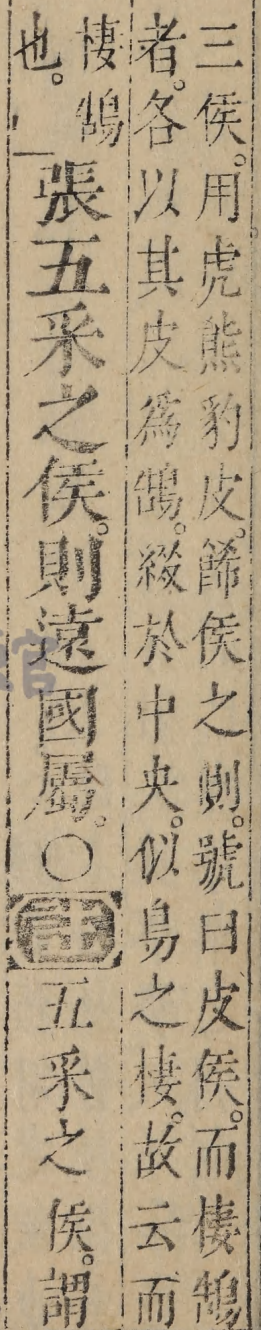 三侯。用虎熊豹皮。飾侯之側。號曰皮侯。而棲鵠
者。各以其皮爲鵠。綴於中央。似鳥之棲。故云而
棲鵠
也。
張五采之侯。則遠國屬。○註五采之侯。謂